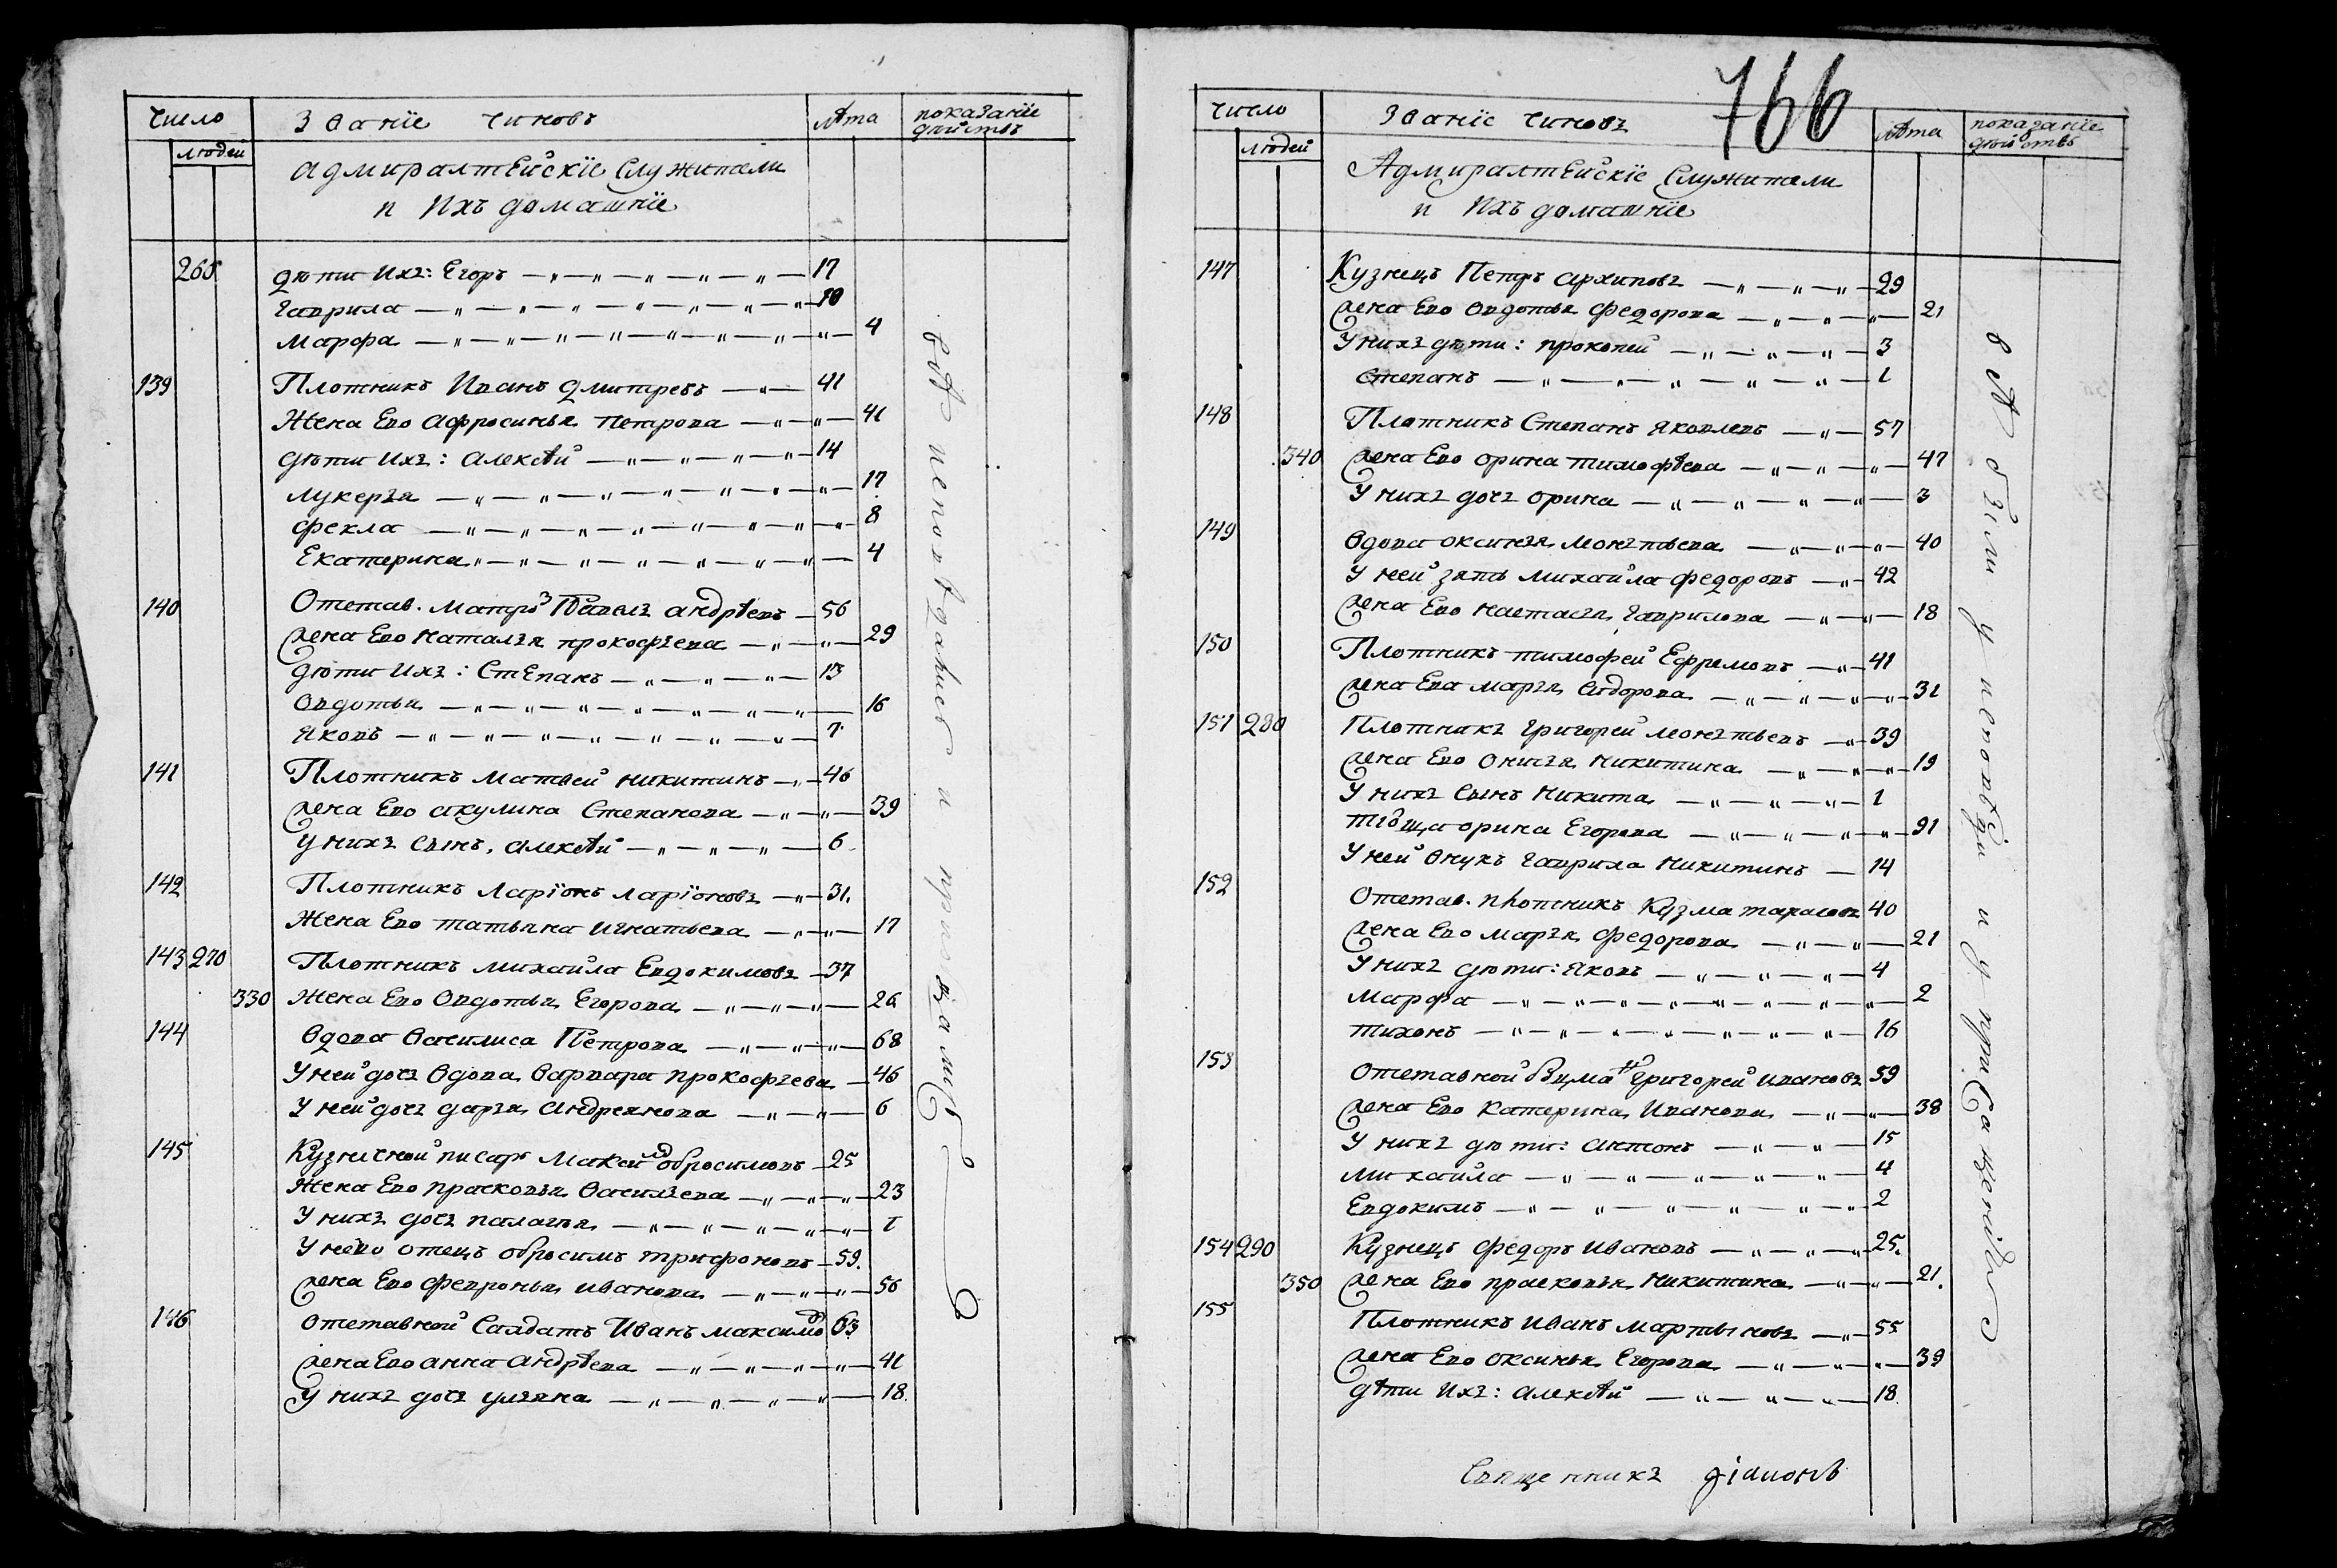 Число
людей
Званïе чиновъ
лѣта
показанïе действъ
адмиралтейскïе служители
и ихъ домашнïе
265 дѣти ихъ: Егоръ 17
Гаврила 10
Марфа 4
139 Плотникъ Иванъ Дмитревъ 41
Жена Ево Афросинья Петрова 41
дѣти ихъ: Алексѣй 14
Лукерья 17
Фекла 8
Екатерина 4
140 Отстав. матро Павелъ андрѣевъ 56
Жена Ево Наталья прокофьева 29
дѣти ихъ: Степанъ 13
Овдотья 16
Яковъ 7
141 Плотникъ Матвей никитинъ 46
Жена Ево акулина Степанова 39
у нихъ сынъ, алексѣй 6
142 Плотникъ Ларïонъ Ларïоновъ 31.
Жена Ево татьяна игнатьева 17
143 270 Плотникъ михайла Евдокимовъ 37
330 Жена Ево Овдотья Егорова 26
144 Вдова Василиса Петрова 68
У ней дочь Вдова Варвара прокофьева 46
У ней дочь дарья андреянова 6
145 Кузнечной писарь Макей обросимовъ 25
Жена Ево прасковья Васильева 23
У нихъ дочь палагья 1
У нево отецъ обросимъ трифоновъ 59.
Жена Ево февронья иванова 56
146 отставной салдатъ Иванъ максимо 63
Жена Ево анна андрѣева 41
У нихъ дочь ульяна 18.
всѣ исповѣдались и
766
Число
людей
Званïе чиновъ
лѣта
показанïе действъ
Адмиралтейскïе служители
и ихъ домашнïе
147 Кузнецъ Петръ архиповъ 29
Жена Ево овдотья федорова 21
У нихъ дѣти: прокопей 3
Степанъ 1
148 Плотникъ Степанъ яковлевъ 57
340 Жена Ево орина тимофѣева 47
У нихъ дочь орина 3
149 Вдова оксинья леонтьева 40
У ней зять михайла федоровъ 42
Жена Ево настасья гаврилова 18
150 Плотникъ тимофей Ефремовъ 41
Жена Ева марья сидорова 31
151 280 Плотникъ григорей леонтьевъ 39
Жена Ево онисья никитина 19
У нихъ сынъ никита 1
тïоща орина Егорова 91
У ней внукъ гаврила никитинъ 14
152 Отстав. плотникъ Кузма тарасовъ 40
Жена Ево марья федорова 21
У нихъ дѣти: яковъ 4
марфа 2
тихонъ 16
153 Отставной григорей ивановъ 59
Жена Ево катерина иванова 38
У нихъ дѣти: антонъ 15
михайла 4
Евдокимъ 2
154 290 Кузнецъ федоръ ивановъ 25.
350 Жена Ево прасковья никитина 21.
155 Плотникъ иванъ мартыновъ 55
Жена Ево оксинья Егорова 39
дѣти ихъ: алексѣй 18
всѣ были у исповѣди и у
Священникъ